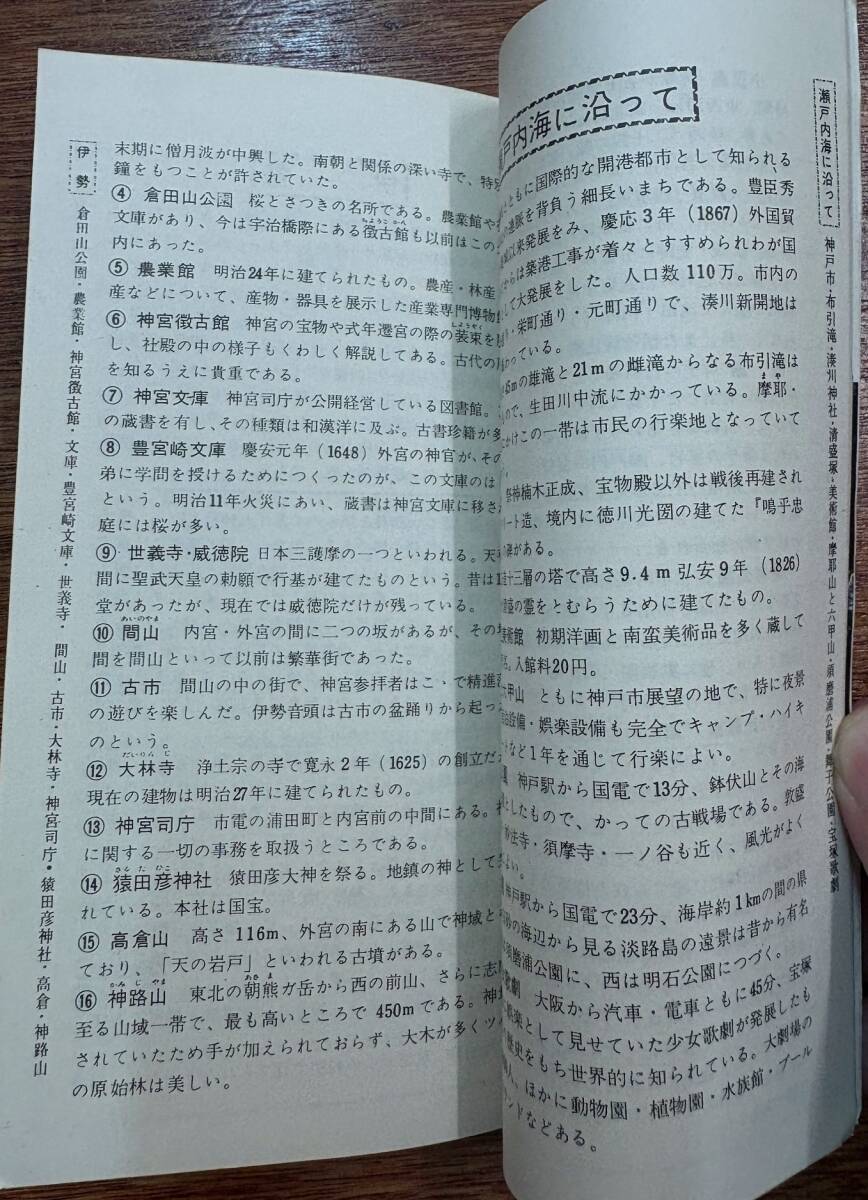 伊勢
倉田山公園・農業館・神宮徴古館・文庫・豊宮崎文庫・世義寺・間山・古市・大林寺・神宮司庁・猿田彦神社・高倉・神路山
末期に僧月波が中興した。南朝と関係の深い寺で、特別
鐘をもつことが許されていた。
④ 倉田山公園 桜とさつきの名所である。農業館や
ちょうこかん
文庫があり、今は宇治橋際にある徴古館も以前はこの
内にあった。
⑤ 農業館 明治24年に建てられたもの。農産・林産
産などについて、産物・器具を展示した産業専門博物
しょうぞく
⑥ 神宮徴古館 神宮の宝物や式年遷宮の際の装束を
し、社殿の中の様子もくわしく解説してある。古代の
を知るうえに貴重である。
⑦ 神宮文庫 神宮司庁が公開経営している図書館。
の蔵書を有し、その種類は和漢洋に及ぶ。古書珍籍が多
⑧ 豊宮崎文庫 慶安元年(1648)外宮の神官が、その
弟に学問を授けるためにつくったのが、この文庫のは
という。明治11年火災にあい、蔵書は神宮文庫に移さ
庭には桜が多い。
⑨ 世義寺・威徳院 日本三護摩の一つといわれる。天
間に聖武天皇の勅願で行基が建てたものという。昔は
堂があったが、現在では威徳院だけが残っている。
あいのやま
⑩ 間山 内宮・外宮の間に二つの坂があるが、その
間を間山といって以前は繁華街であった。
⑪ 古市 間山の中の街で、神宮参拝者はこゝで精進
の遊びを楽しんだ。伊勢音頭は古市の盆踊りから起っ
のという。
だいりんじ
⑫ 大林寺 浄土宗の寺で寛永2年(1625)の創立だ
現在の建物は明治27年に建てられたもの。
⑬ 神宮司庁 市電の浦田町と内宮前の中間にある。
に関する一切の事務を取扱うところである。
さるたひこ
⑭ 猿田彦神社 猿田彦大神を祭る。地鎮の神として
れている。本社は国宝。
⑮ 高倉山 高さ116m、外宮の南にある山で神域と
ており、「天の岩戸」といわれる古墳がある。
かみじやま あさま
⑯ 神路山 東北の朝熊ガ岳から西の前山、さらに志
至る山域一帯で、最も高いところで450mである。神
されていたため手が加えられておらず、大木が多くツ
の原始林は美しい。
戸内海に沿って
ともに国際的な開港都市として知られる
の連脈を背負う細長いまちである。豊臣秀
以来発展をみ、慶応3年(1867)外国貿
からは築港工事が着々とすすめられわが国
して大発展をした。人口数110万。市内の
・栄町通り・元町通りで、湊川新開地は
わっている。
45mの雄滝と21mの雌滝からなる布引滝は
まや
ので、生田川中流にかかっている。摩耶・
かけこの一帯は市民の行楽地となっていて
祭神楠木正成、宝物殿以外は戦後再建され
ート造、境内に徳川光圀の建てた『嗚乎忠
碑がある。
十三層の塔で高さ9.4m弘安9年(1826)
盛の霊をとむらうために建てたもの。
美術館 初期洋画と南蛮美術品を多く蔵して
る。入館料20円。
六甲山 ともに神戸市展望の地で、特に夜景
設備・娯楽設備も完全でキャンプ・ハイキ
など1年を通じて行楽によい。
神戸駅から国電で13分、鉢伏山とその海
としたもので、かっての古戦場である。敦盛
妙法寺・須摩寺・一ノ谷も近く、風光がよく
よい。
神戸駅から国電で23分、海岸約1kmの間の県
の海辺から見る淡路島の遠景は昔から有名
須磨浦公園に、西は明石公園につづく。
歌劇 大阪から汽車・電車ともに45分、宝塚
娯楽として見せていた少女歌劇が発展したも
歴史をもち世界的に知られている。大劇場の
ほかに動物園・植物園・水族館・プール
ランドなどある。
瀬戸内海に沿って
神戸市・布引滝・湊川神社・清盛塚・美術館・摩耶山と六甲山・須磨浦公園・舞子公園・宝塚歌劇